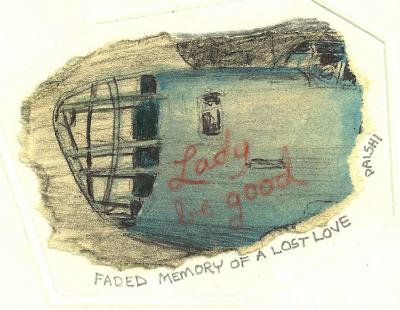 Lady
be good
DAISHI
FADED MEMORY OF A LOST LOVE